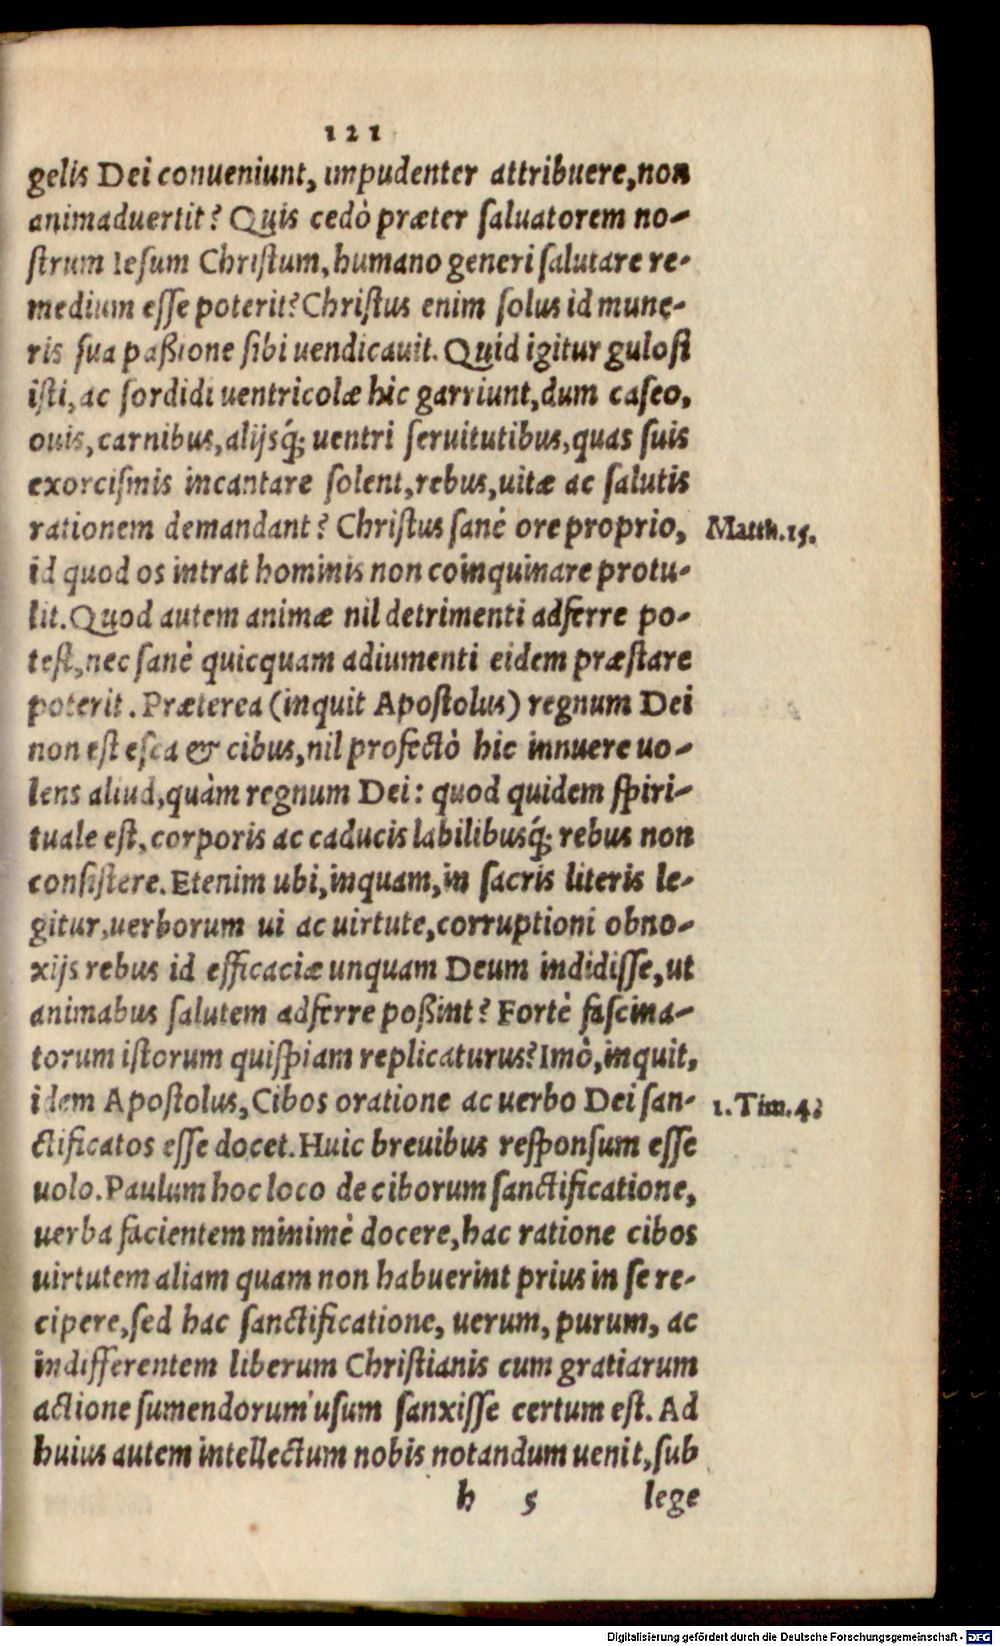 121
gelis Dei conueniunt, impudenter attribuere, non
animaduertit? Quis cedò præter saluatorem no-
strum Iesum Christum, humano generi salutare re-
medium esse poterit? Christus enim solus id mune-
ris sua paßione sibi uendicauit. Quid igitur gulosi
isti, ac sordidi uentricolæ hic garriunt, dum caseo,
ouis, carnibus, alijsq́; uentri seruitutibus, quas suis
exorcismis incantare solent, rebus, uitæ ac salutis
rationem demandant? Christus sanè ore proprio, Matth.15.
id quod os intrat hominis non coinquinare protu-
lit. Quod autem animæ nil detrimenti adferre po-
test, nec sanè quicquam adiumenti eidem præstare
poterit. Præterea (inquit Apostolus) regnum Dei
non est esca & cibus, nil profectò hic innuere uo-
lens aliud, quàm regnum Dei: quod quidem spiri-
tuale est, corporis ac caducis labilibusq́; rebus non
consistere. Etenim ubi, inquam, in sacris literis le-
gitur, uerborum ui ac uirtute, corruptioni obno-
xijs rebus id efficaciæ unquam Deum indidisse, ut
animabus salutem adferre poßint? Fortè fascina-
torum istorum quispiam replicaturus? Imò, inquit,
idem Apostolus, Cibos oratione ac uerbo Dei san- 1.Tim.4.
ctificatos esse docet. Huic breuibus responsum esse
uolo. Paulum hoc loco de ciborum sanctificatione,
uerba facientem minimè docere, hac ratione cibos
uirtutem aliam quam non habuerint prius in se re-
cipere, sed hac sanctificatione, uerum, purum, ac
indifferentem liberum Christianis cum gratiarum
actione sumendorum usum sanxisse certum est. Ad
huius autem intellectum nobis notandum uenit, sub
h 5 lege
Digitalisierung gefördert durch die Deutsche Forschungsgemeinschaft - DFG